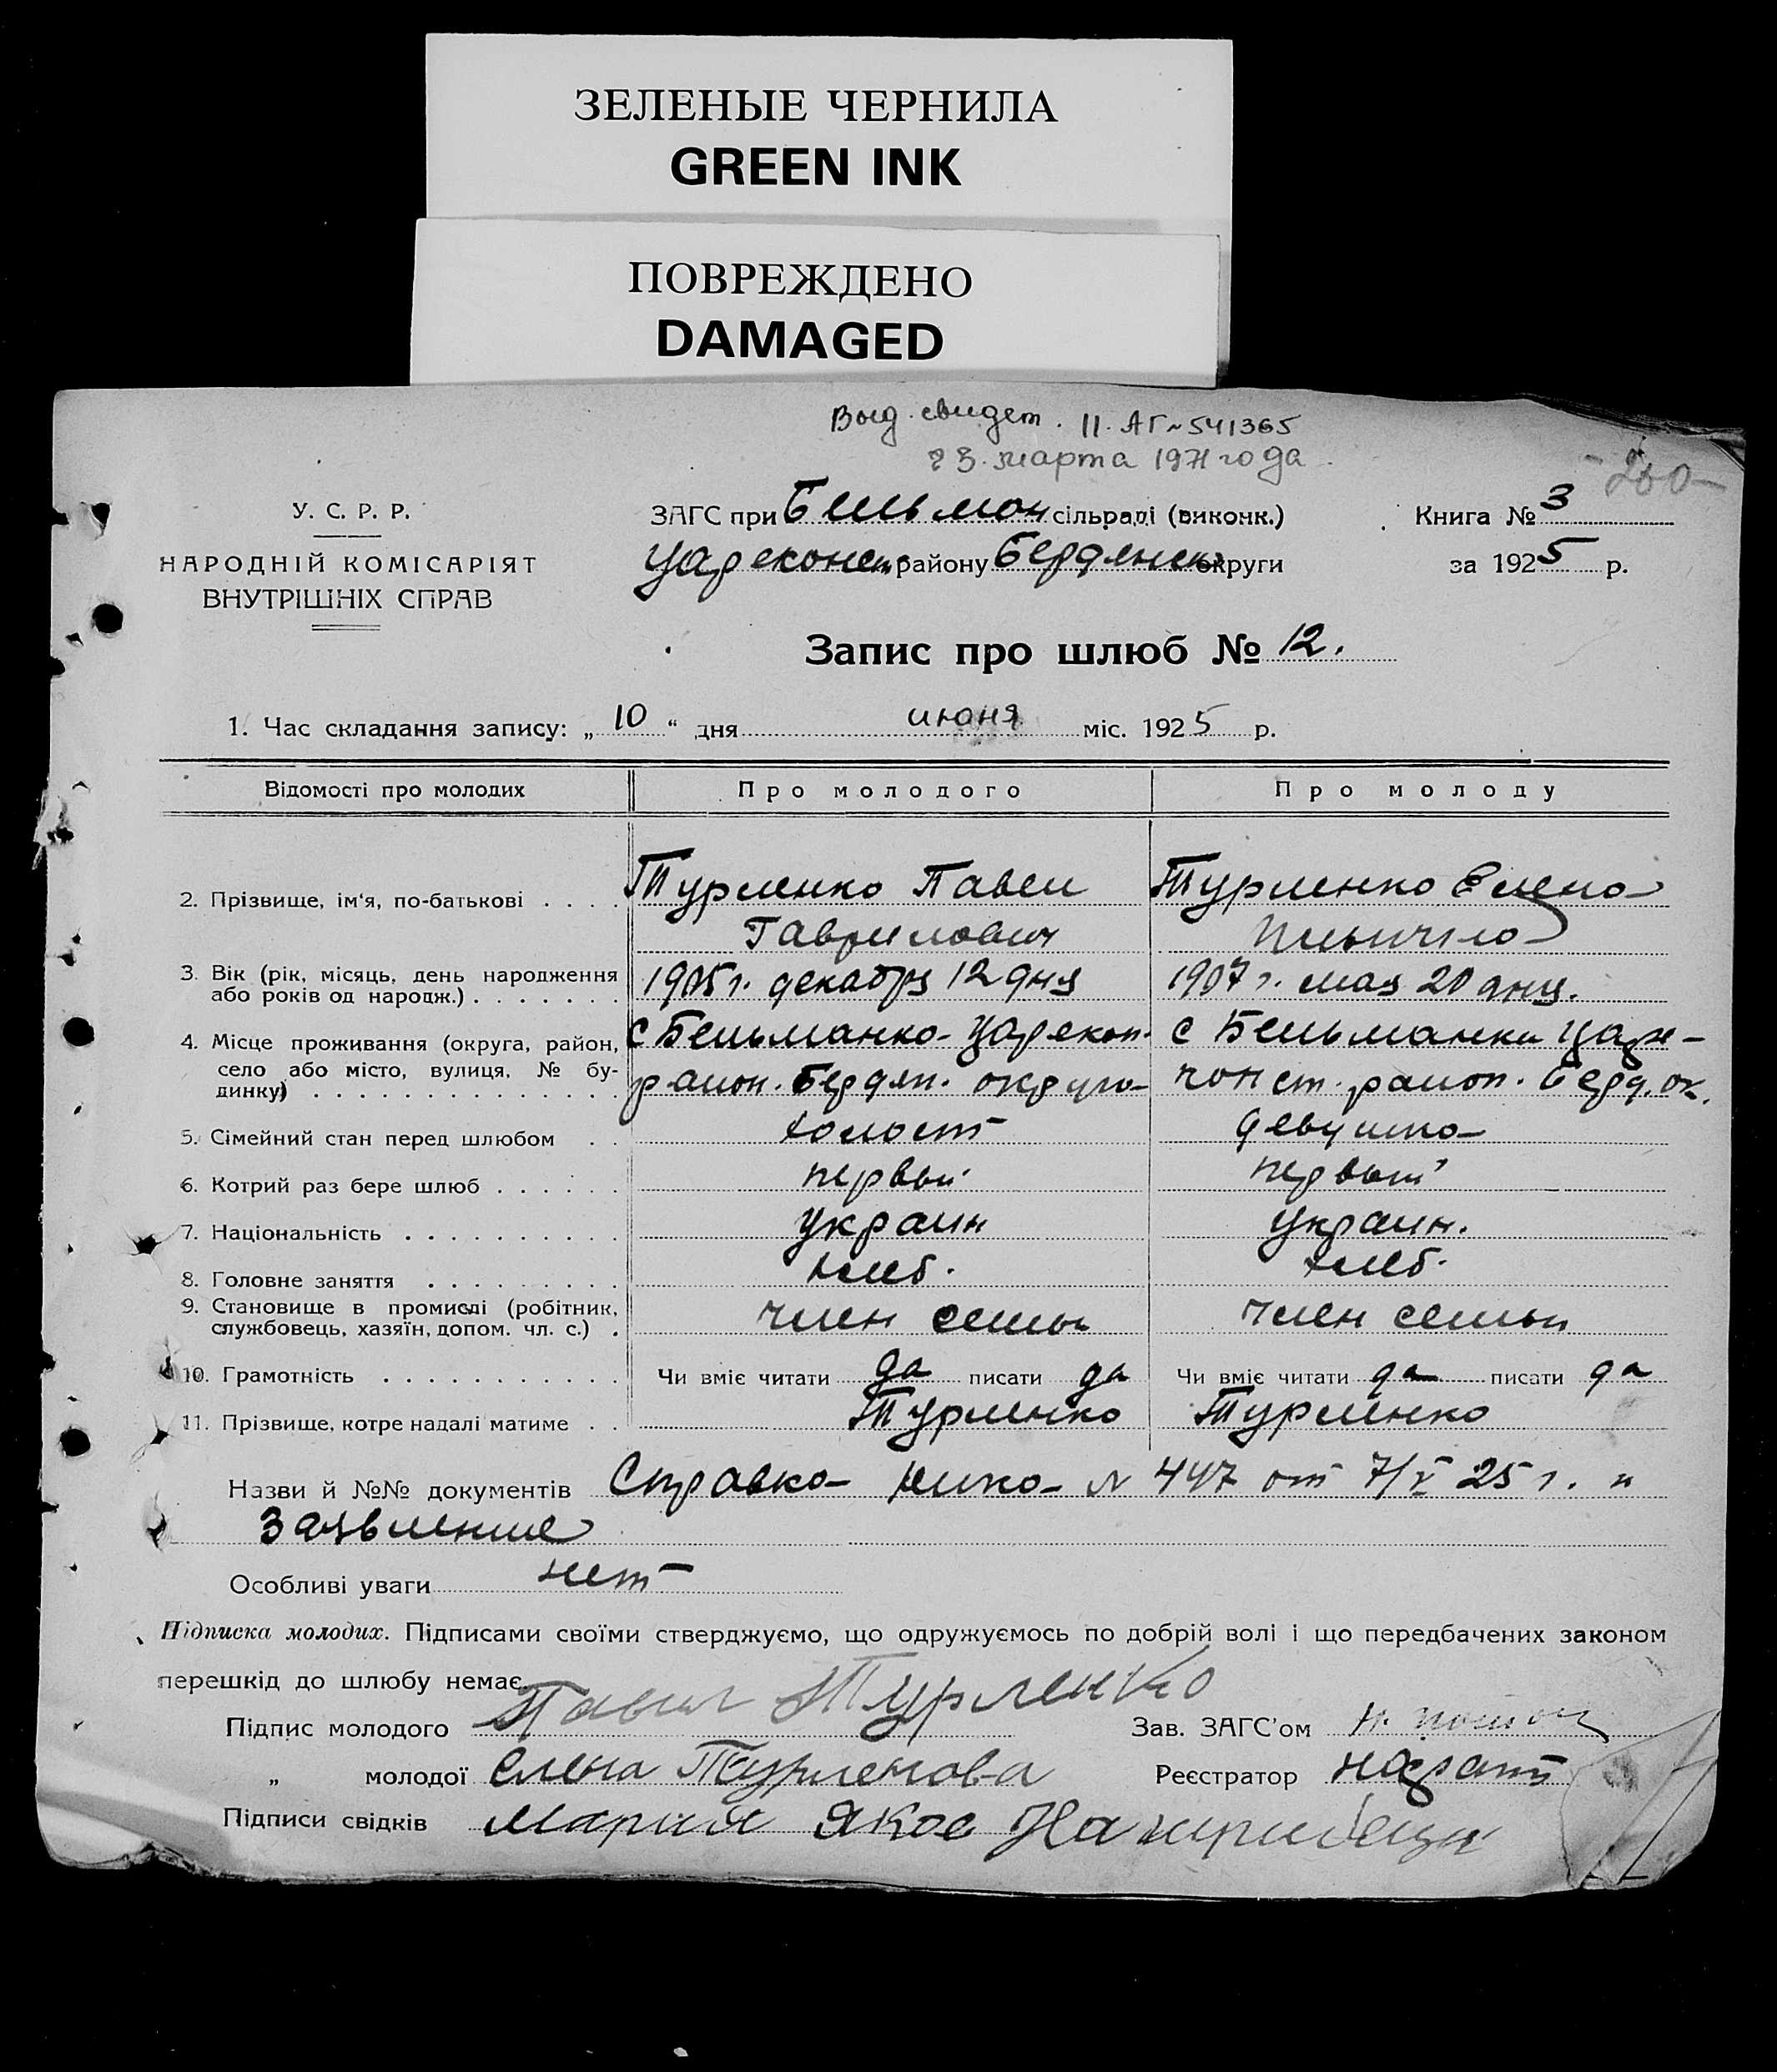 ЗЕЛЕНЫЕ ЧЕРНИЛА
GREEN INK
ПОВРЕЖДЕНО
DAMAGED
Выд. свидет. II-АГ № 541365
23 марта 1971 года.
-260-
У. С. Р. Р.
НАРОДНІЙ КОМІСАРІЯТ
ВНУТРІШНІХ СПРАВ
ЗАГС при Бельман сільраді (виконк.)
Цареконс. району Бердянск округи
Книга № 3
за 1925 р.
Запис про шлюб № 12.
1. Час складання запису: „ 10 “ дня июня міс. 1925 р.
Відомості про молодих Про молодого Про молоду
2. Прізвище, ім‘я, по-батькові . . . . Турленко Павел Турленко Елена
Гаврилович Ильинична
3. Вік (рік, місяць, день народження 1905 г. декабря 12 дня 1907 г. мая 20 дня.
або років од народж.) . . . . . . .
4. Місце проживання (округа, район, с Бельманка Царекон. с Бельманки Царе-
село або місто, вулиця, № бу- район. Бердян. округа конст. район. Берд. ок.
динку) . . . . . . . . . . . . . .
5. Сімейний стан перед шлюбом . . холост девушка
6. Котрий раз бере шлюб . . . . . . первый первый
7. Національність . . . . . . . . . . украин украин.
8. Головне заняття . . . . . . . . . хлеб. хлеб.
9. Становище в промислі (робітник, член семьи член семьи
службовець, хазяїн, допом. чл. с.) .
10. Грамотність . . . . . . . . . . . Чи вміє читати да писати да Чи вміє читати да писати да
11. Прізвище, котре надалі матиме . . Турленко Турленко
Назви й №№ документів Справка N 447 от 7/V 25 г. и
Заявление
Особливі уваги нет
Підписка молодих. Підписами своїми стверджуємо, що одружуємось по добрій волі і що передбачених законом
перешкід до шлюбу немає.
Підпис молодого Павел Турленко Зав. ЗАГС’ом
„ молодої Елена Турленова Реєстратор
Підписи свідків Мария